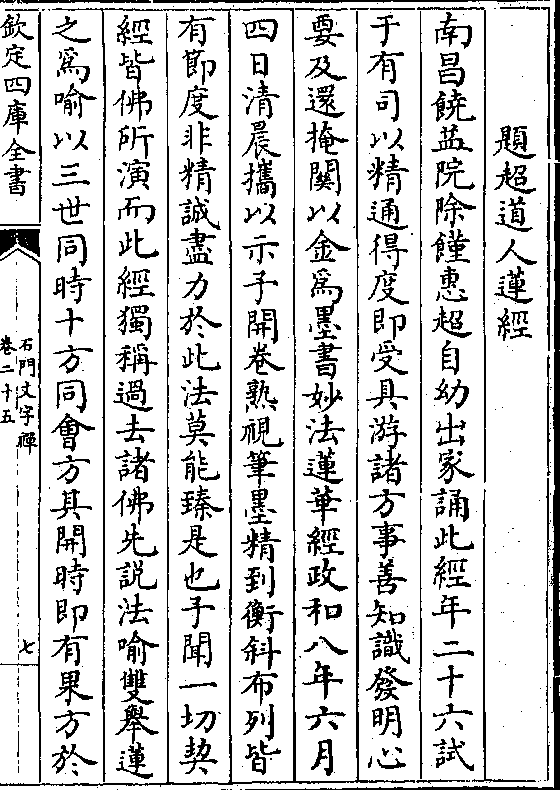 題超道人蓮經
南昌饒益院除饉惠超自幼出家誦此經年二十六試
于有司以精通得度即受具游諸方事善知識發明心
要及還掩關以金為墨書妙法蓮華經政和八年六月
四日清晨攜以示予開卷熟視筆墨精到衡斜布列皆
有節度非精誠盡力於此法莫能臻是也予聞一切契
經皆佛所演而此經獨稱過去諸佛先說法喻雙舉蓮
之為喻以三世同時十方同會方其開時即有果方於
欽定四庫全書
石門文字禪
卷二十五
七